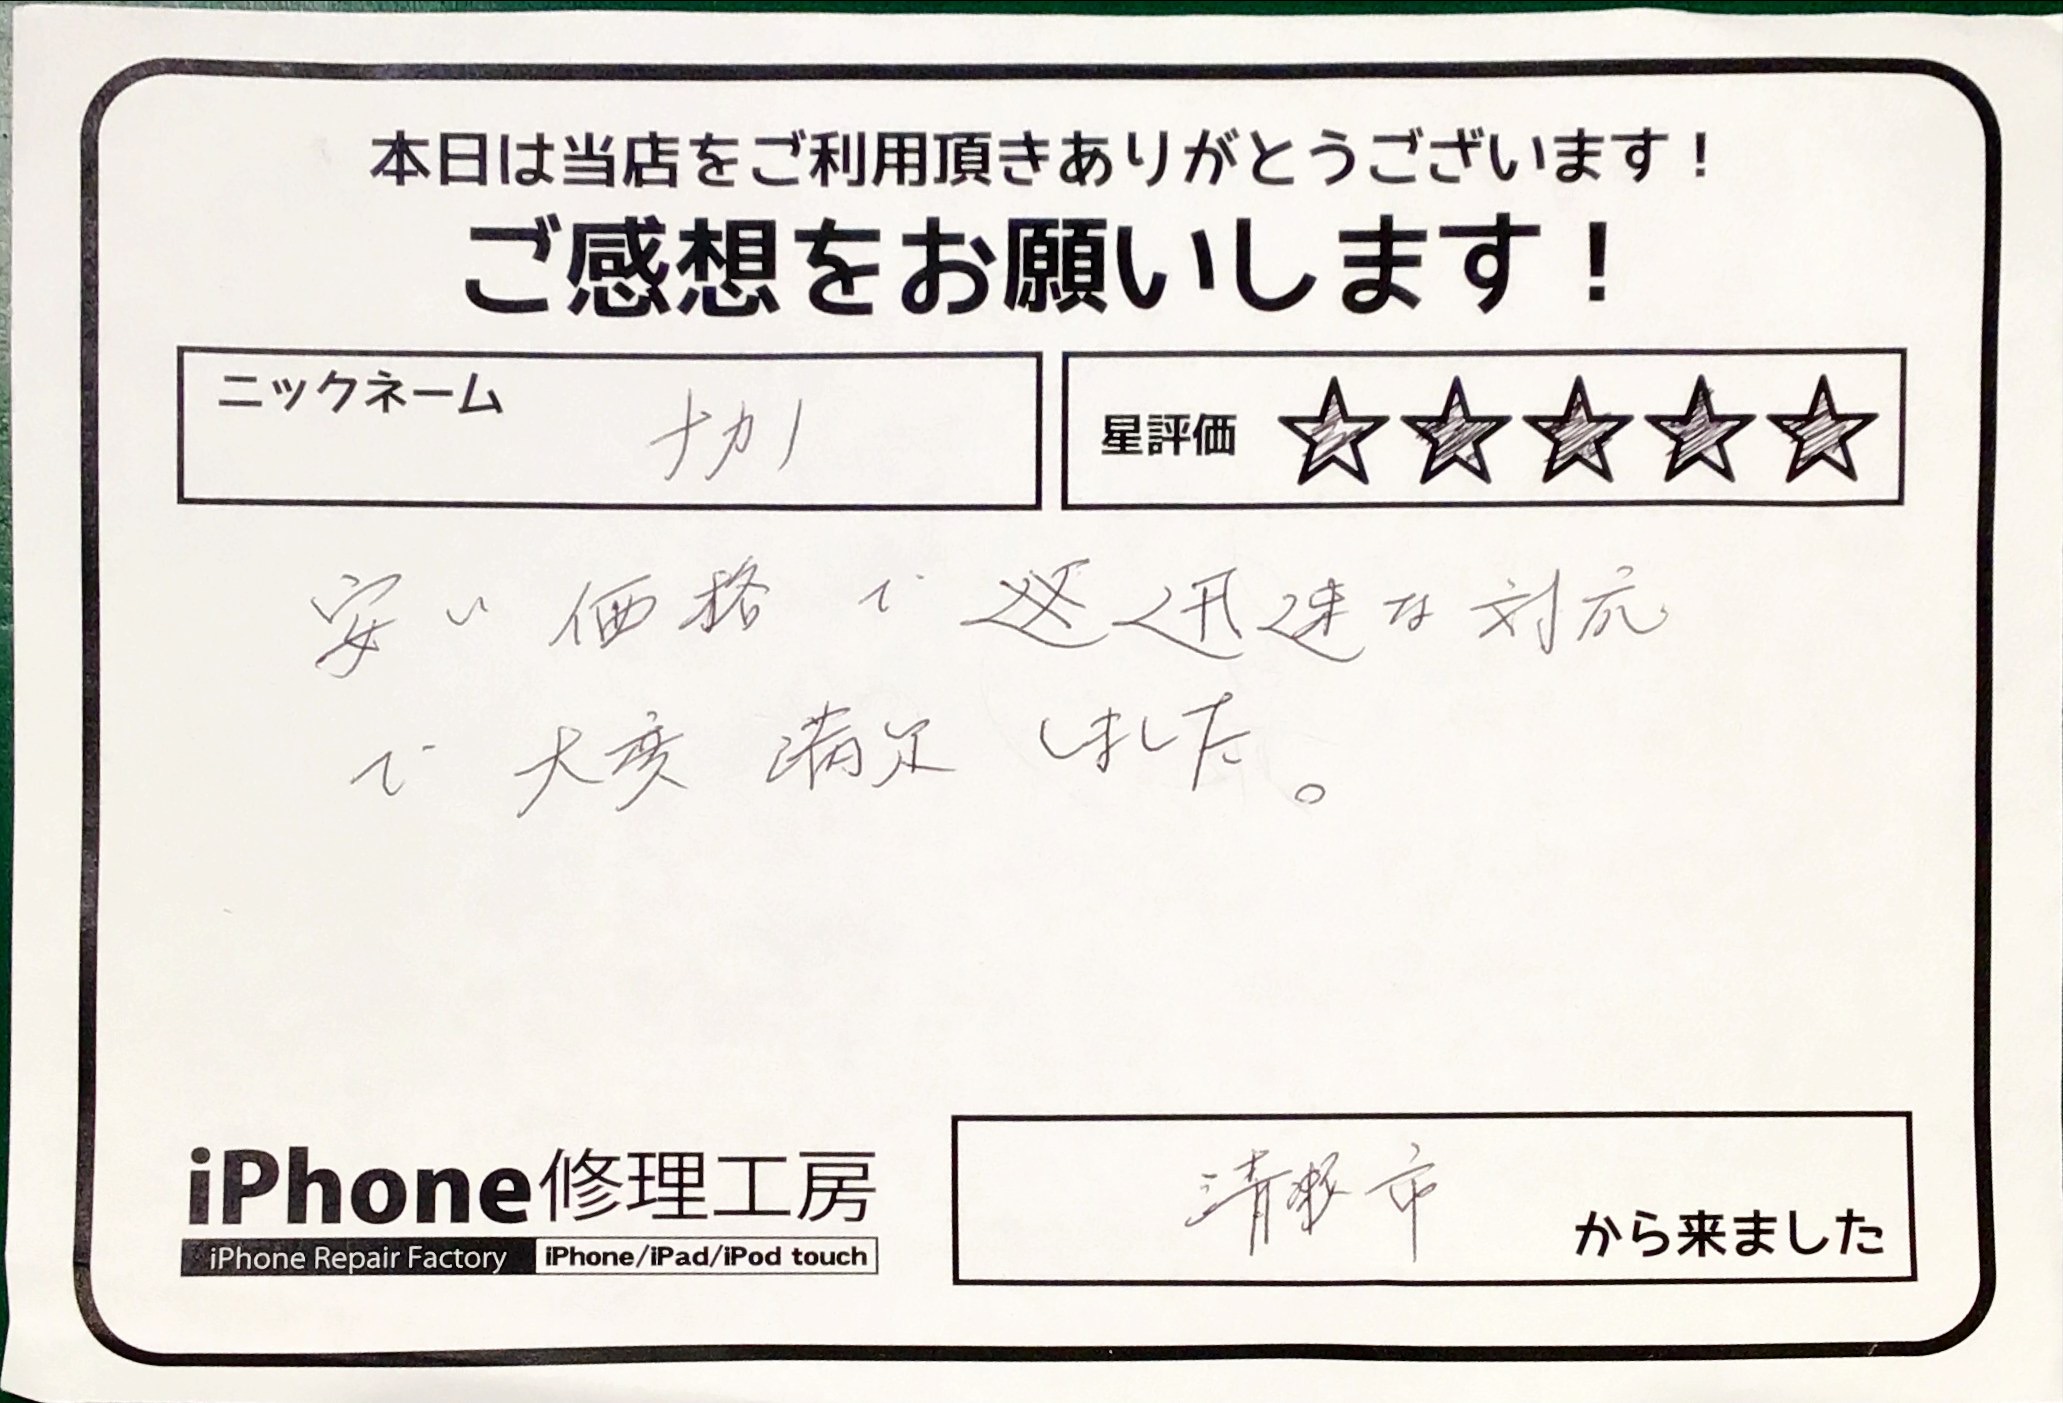 本日は当店をご利用頂きありがとうございます！
ご感想をお願いします！
ニックネーム ナカノ
星評価 ☆☆☆☆☆
安い価格で迅速な対応
で大変満足しました。
iPhone修理工房
iPhone Repair Factory iPhone/iPad/iPod touch
清瀬市 から来ました